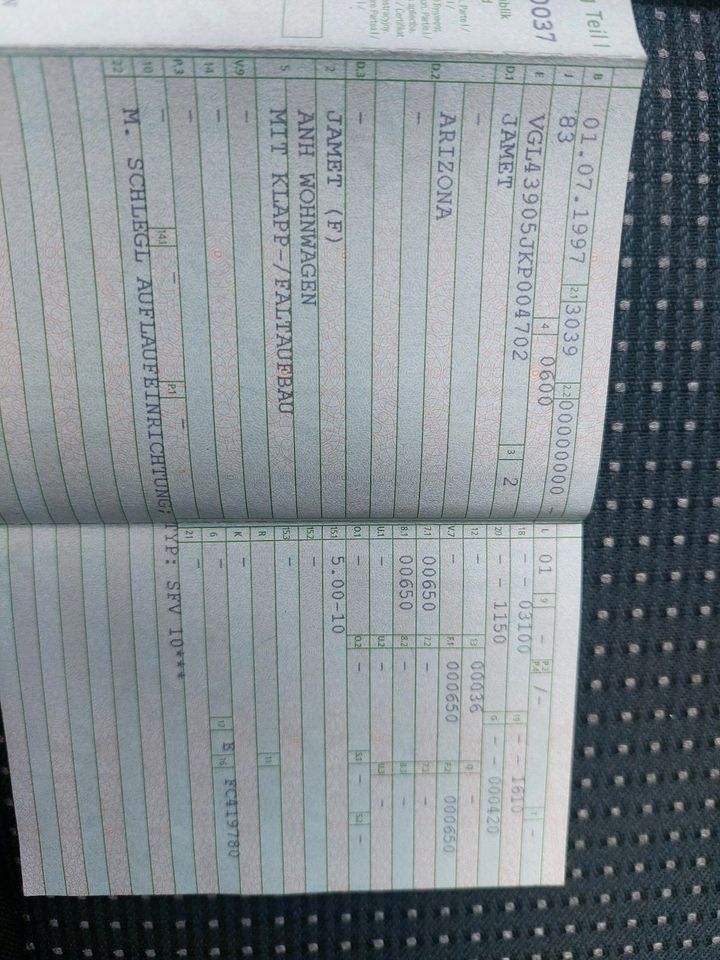 g Teil I
0037
B 01.07.1997 2.1 3039 2.2 00000000 -
J '83 4 0600
E VGL43905JKP004702 3 2
D.1 JAMET
-
D.2 ARIZONA
-
D.3 -
2 JAMET (F)
ANH WOHNWAGEN
5 MIT KLAPP-/FALTAUFBAU
V.9 -
14 -
P.3 - 14.1 - P.1 -
10 -
22 M. SCHLEGL AUFLAUFEINRICHTUNG, TYP: SFV 10***
L 01 9 - P.2 P.4 /- T -
18 - - 03100 19 - - 1610
20 - - 1150 G - - 000420
12 - 13 00036 Q -
V.7 - F.1 000650 F.2 000650
7.1 00650 7.2 - 7.3 -
8.1 00650 8.2 - 8.3 -
U.1 - U.2 - U.3 -
O.1 - O.2 - S.1 - S.2 -
15.1 5.00-10
15.2 -
15.3 -
R 11
K -
6 - 17 E 16 FC419780
21 -